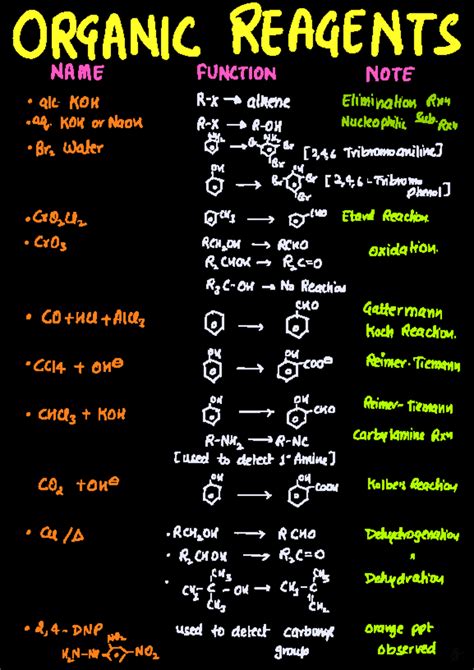 ORGANIC REAGENTS
NAME FUNCTION NOTE
• alc. KOH R-X → alkene Elimination Rxn
• aq. KOH or NaOH R-X → R-OH Nucleophilic Sub. Rxn
• Br₂ Water NH₂ → NH₂ Br Br Br [2,4,6 Tribromoaniline]
OH → OH Br Br Br [2,4,6-Tribromo phenol]
• CrO₂Cl₂ CH₃ → CHO Etard Reaction.
• CrO₃ RCH₂OH → RCHO oxidation.
R₂CHOH → R₂C=O
R₃C-OH → No Reaction
• CO + HCl + AlCl₃ → CHO Gattermann
Koch Reaction.
• CCl4 + OH⊖ OH → OH COO⊖ Reimer-Tiemann
• CHCl₃ + KOH OH → OH CHO Reimer-Tiemann
R-NH₂ → R-NC Carbylamine Rxn
[used to detect 1° Amine]
CO₂ + OH⊖ OH → OH COOH Kolbe's Reaction
• Cu/Δ • RCH₂OH → RCHO Dehydrogenation
• R₂CHOH → R₂C=O
• CH₃-C-OH → CH₃-C- Dehydration
CH₃ CH₃ CH₃ CH₂
• 2,4-DNP used to detect carbonyl orange ppt
H₂N-NH NO₂ NO₂ group observed